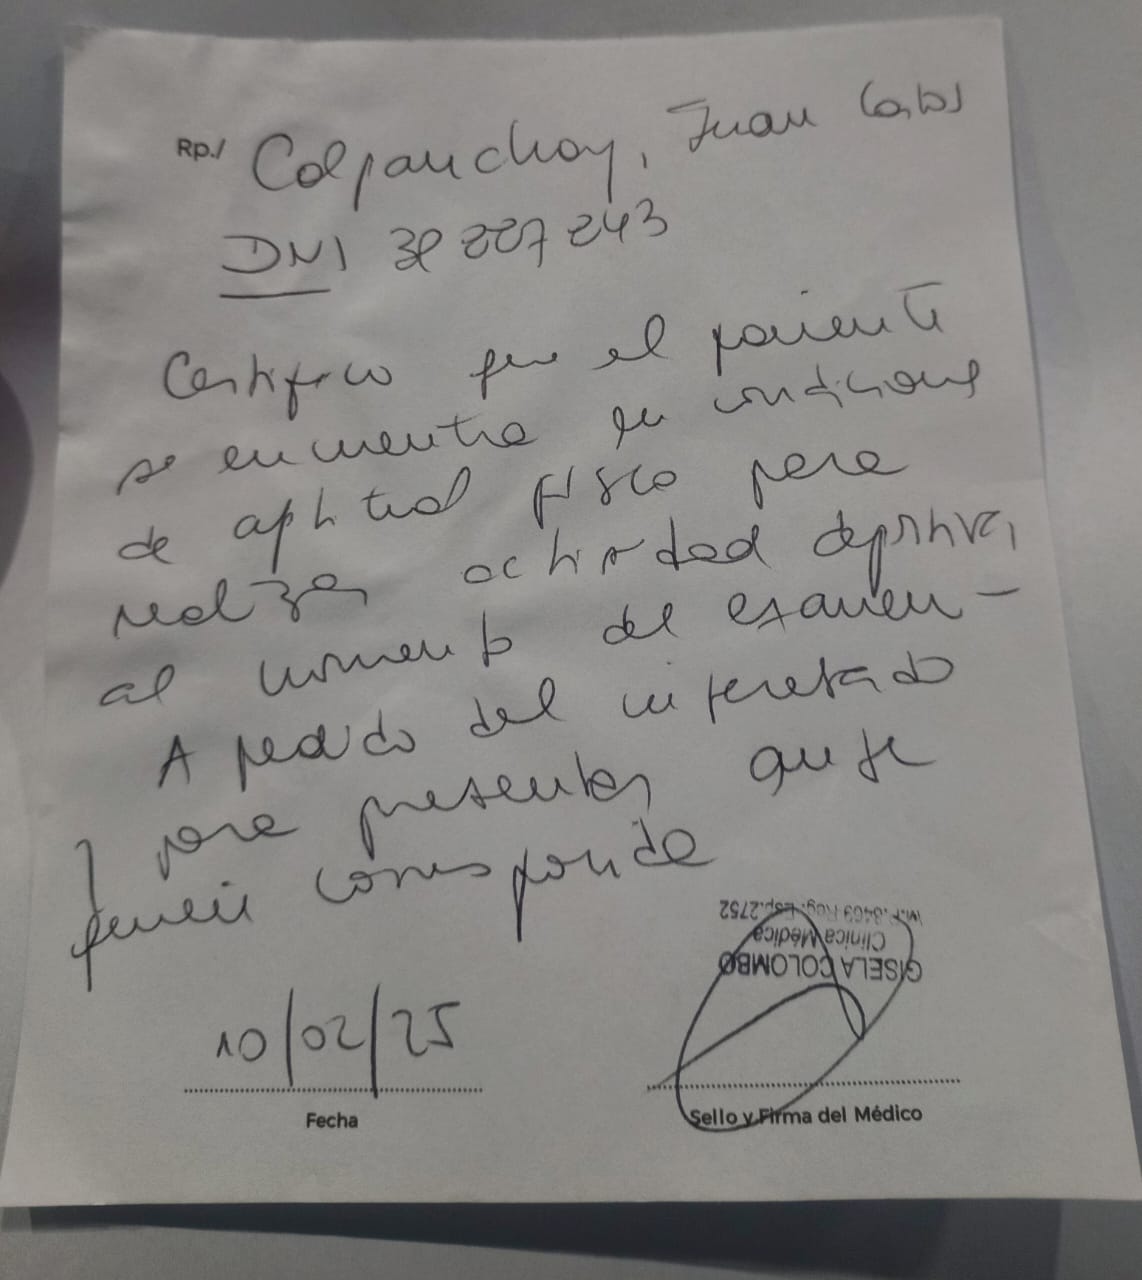 Rp./ Colpanchay, Juan Carlos
DNI 227 243
Certifico que el paciente
se encuentra en condiciones
de aptitud física para
realizar actividad deportiva,
al momento del examen -
A pedido del interesado
para presentar ante
quien corresponda
M.P. 3469 Reg. Esp. 2752
Clínica Médica
GISELA COLOMBO
10/02/25
Fecha
Sello y Firma del Médico